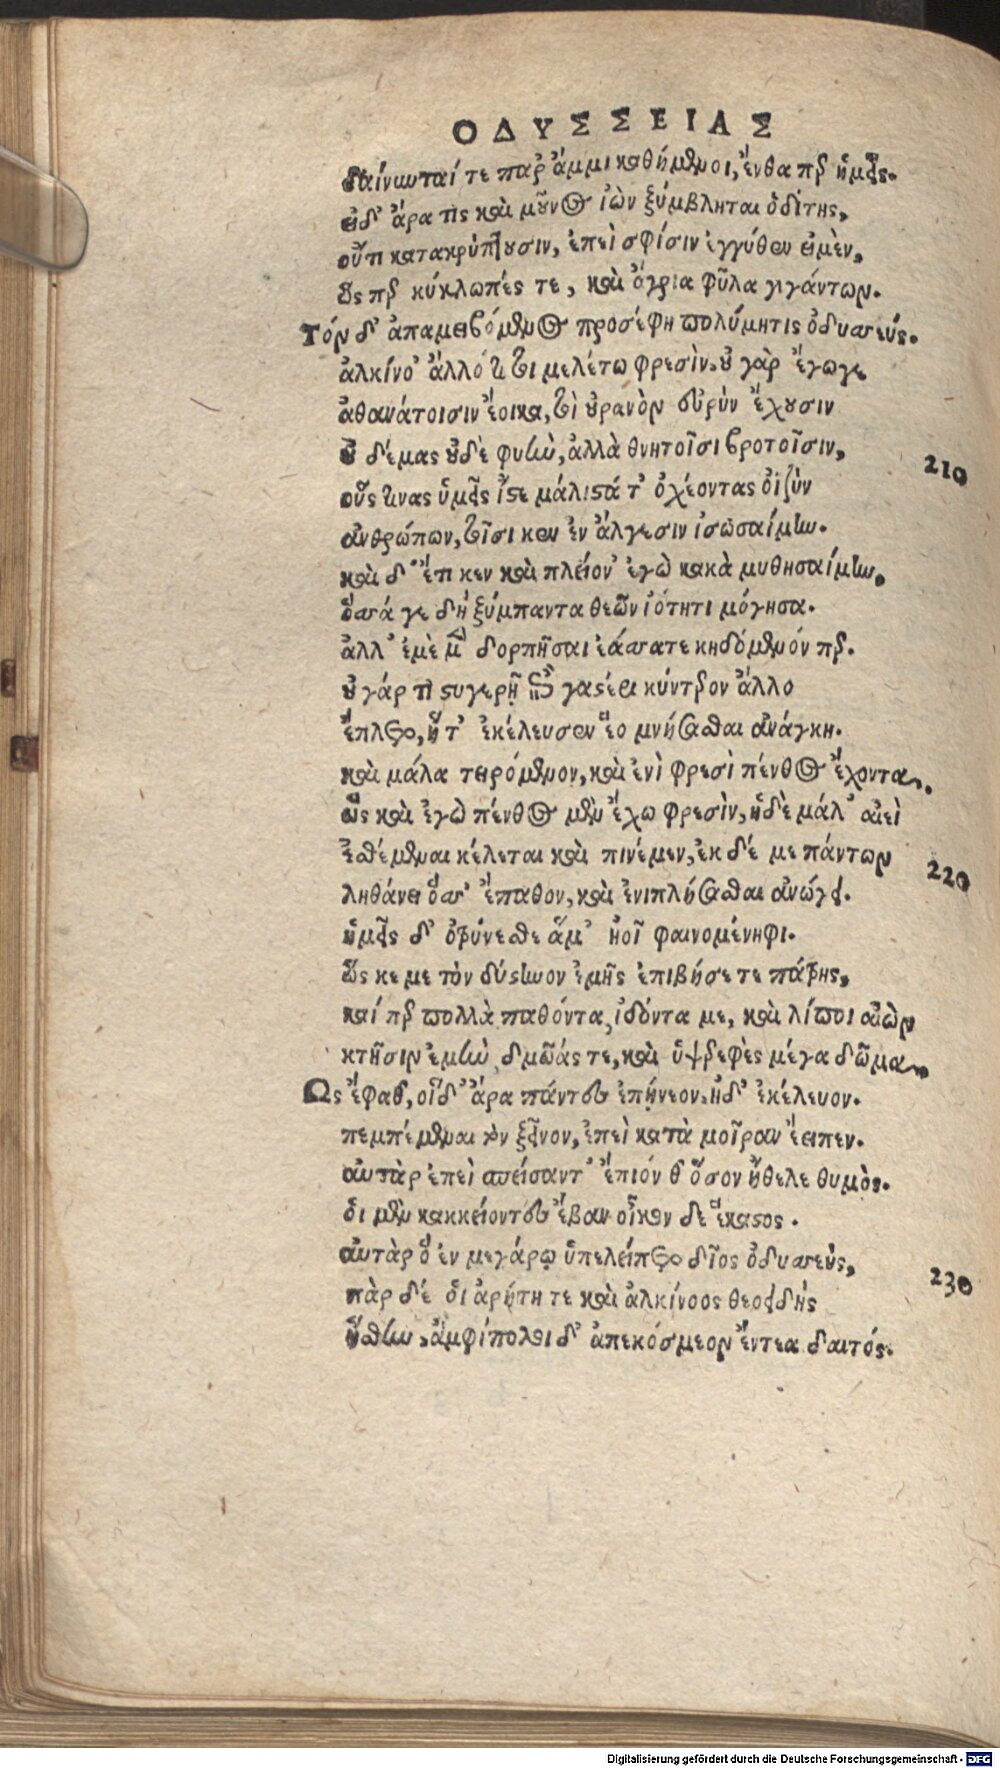 ΟΔΥΣΣΕΙΑΣ
δαίνυνταί τε παρ' ἄμμι καθήμενοι, ἔνθα περ ἡμεῖς.
εἰ δ' ἄρα τὶς καὶ μοῦνος ἰὼν ξύμβληται ὁδίτης,
οὔτι κατακρύπτουσιν, ἐπεὶ σφίσιν ἐγγύθεν εἰμὲν,
ὥς περ κύκλωπές τε, καὶ ἄγρια φῦλα γιγάντων.
Τόν δ' ἀπαμειβόμενος προσέφη πολύμητις ὀδυσσεύς.
ἀλκίνο' ἄλλό τί τοι μελέτω φρεσὶν. οὐ γὰρ ἔγωγε
ἀθανάτοισιν ἔοικα, τοὶ οὐρανὸν εὐρὺν ἔχουσιν
οὐ δέμας οὐδὲ φυὴν, ἀλλὰ θνητοῖσι βροτοῖσιν,
οὕς τινας ὑμεῖς ἴστε μάλιστά τ' ὀχέοντας ὀϊζὺν
210
ἀνθρώπων, τοῖσι κεν ἐν ἄλγεσιν ἰσωσαίμην.
καὶ δ' ἔτι κεν καὶ πλείον' ἐγὼ κακὰ μυθησαίμην,
ὅσσά γε δὴ ξύμπαντα θεῶν ἰότητι μόγησα.
ἀλλ' ἐμὲ μὲν δορπῆσαι ἐάσσατε κηδόμενόν περ.
οὐ γάρ τὶ στυγερῇ ἐπὶ γαστέρι κύντερον ἄλλο
ἔπλετο, ἥ τ' ἐκέλευσεν ἕο μνήσασθαι ἀνάγκη.
καὶ μάλα τειρόμενον, καὶ ἐνὶ φρεσὶ πένθος ἔχοντα.
ὣς καὶ ἐγὼ πένθος μὲν ἔχω φρεσὶν, ἡδὲ μάλ' αἰεὶ
ἐσθέμεναι κέλεται καὶ πινέμεν, ἐκ δέ με πάντων
220
ληθάνει ὅσσ' ἔπαθον, καὶ ἐνιπλήσασθαι ἀνώγει.
ἡμεῖς δ' ὀτρύνεσθε ἅμ' ἠοῖ φαινομένηφι.
ὥς κε με τὸν δύστηνον ἐμῆς ἐπιβήσετε πάτρης,
καί περ πολλὰ παθόντα, ἰδόντα με, καὶ λίποι αἰὼν
κτῆσιν ἐμὴν, δμῶάς τε, καὶ ὑψρεφὲς μέγα δῶμα.
Ως ἔφαθ, οἵδ' ἄρα πάντες ἐπῄνεον. ἠδ' ἐκέλευον.
πεμπέμεναι τὸν ξεῖνον, ἐπεὶ κατὰ μοῖραν ἔειπεν.
αὐτὰρ ἐπεὶ σπείσαντ' ἔπιόν θ' ὅσον ἤθελε θυμὸς.
ὁι μὲν κακκείοντες ἔβαν οἶκον δε ἕκαστος.
αὐτὰρ ὅ ἐν μεγάρῳ ὑπελείπετο δῖος ὀδυσσεὺς,
230
πὰρ δέ ὁι ἀρήτη τε καὶ ἀλκίνοος θεοειδὴς
ἥσθην, ἀμφίπολοι δ' ἀπεκόσμεον ἔντεα δαιτός.
Digitalisierung gefördert durch die Deutsche Forschungsgemeinschaft - DFG